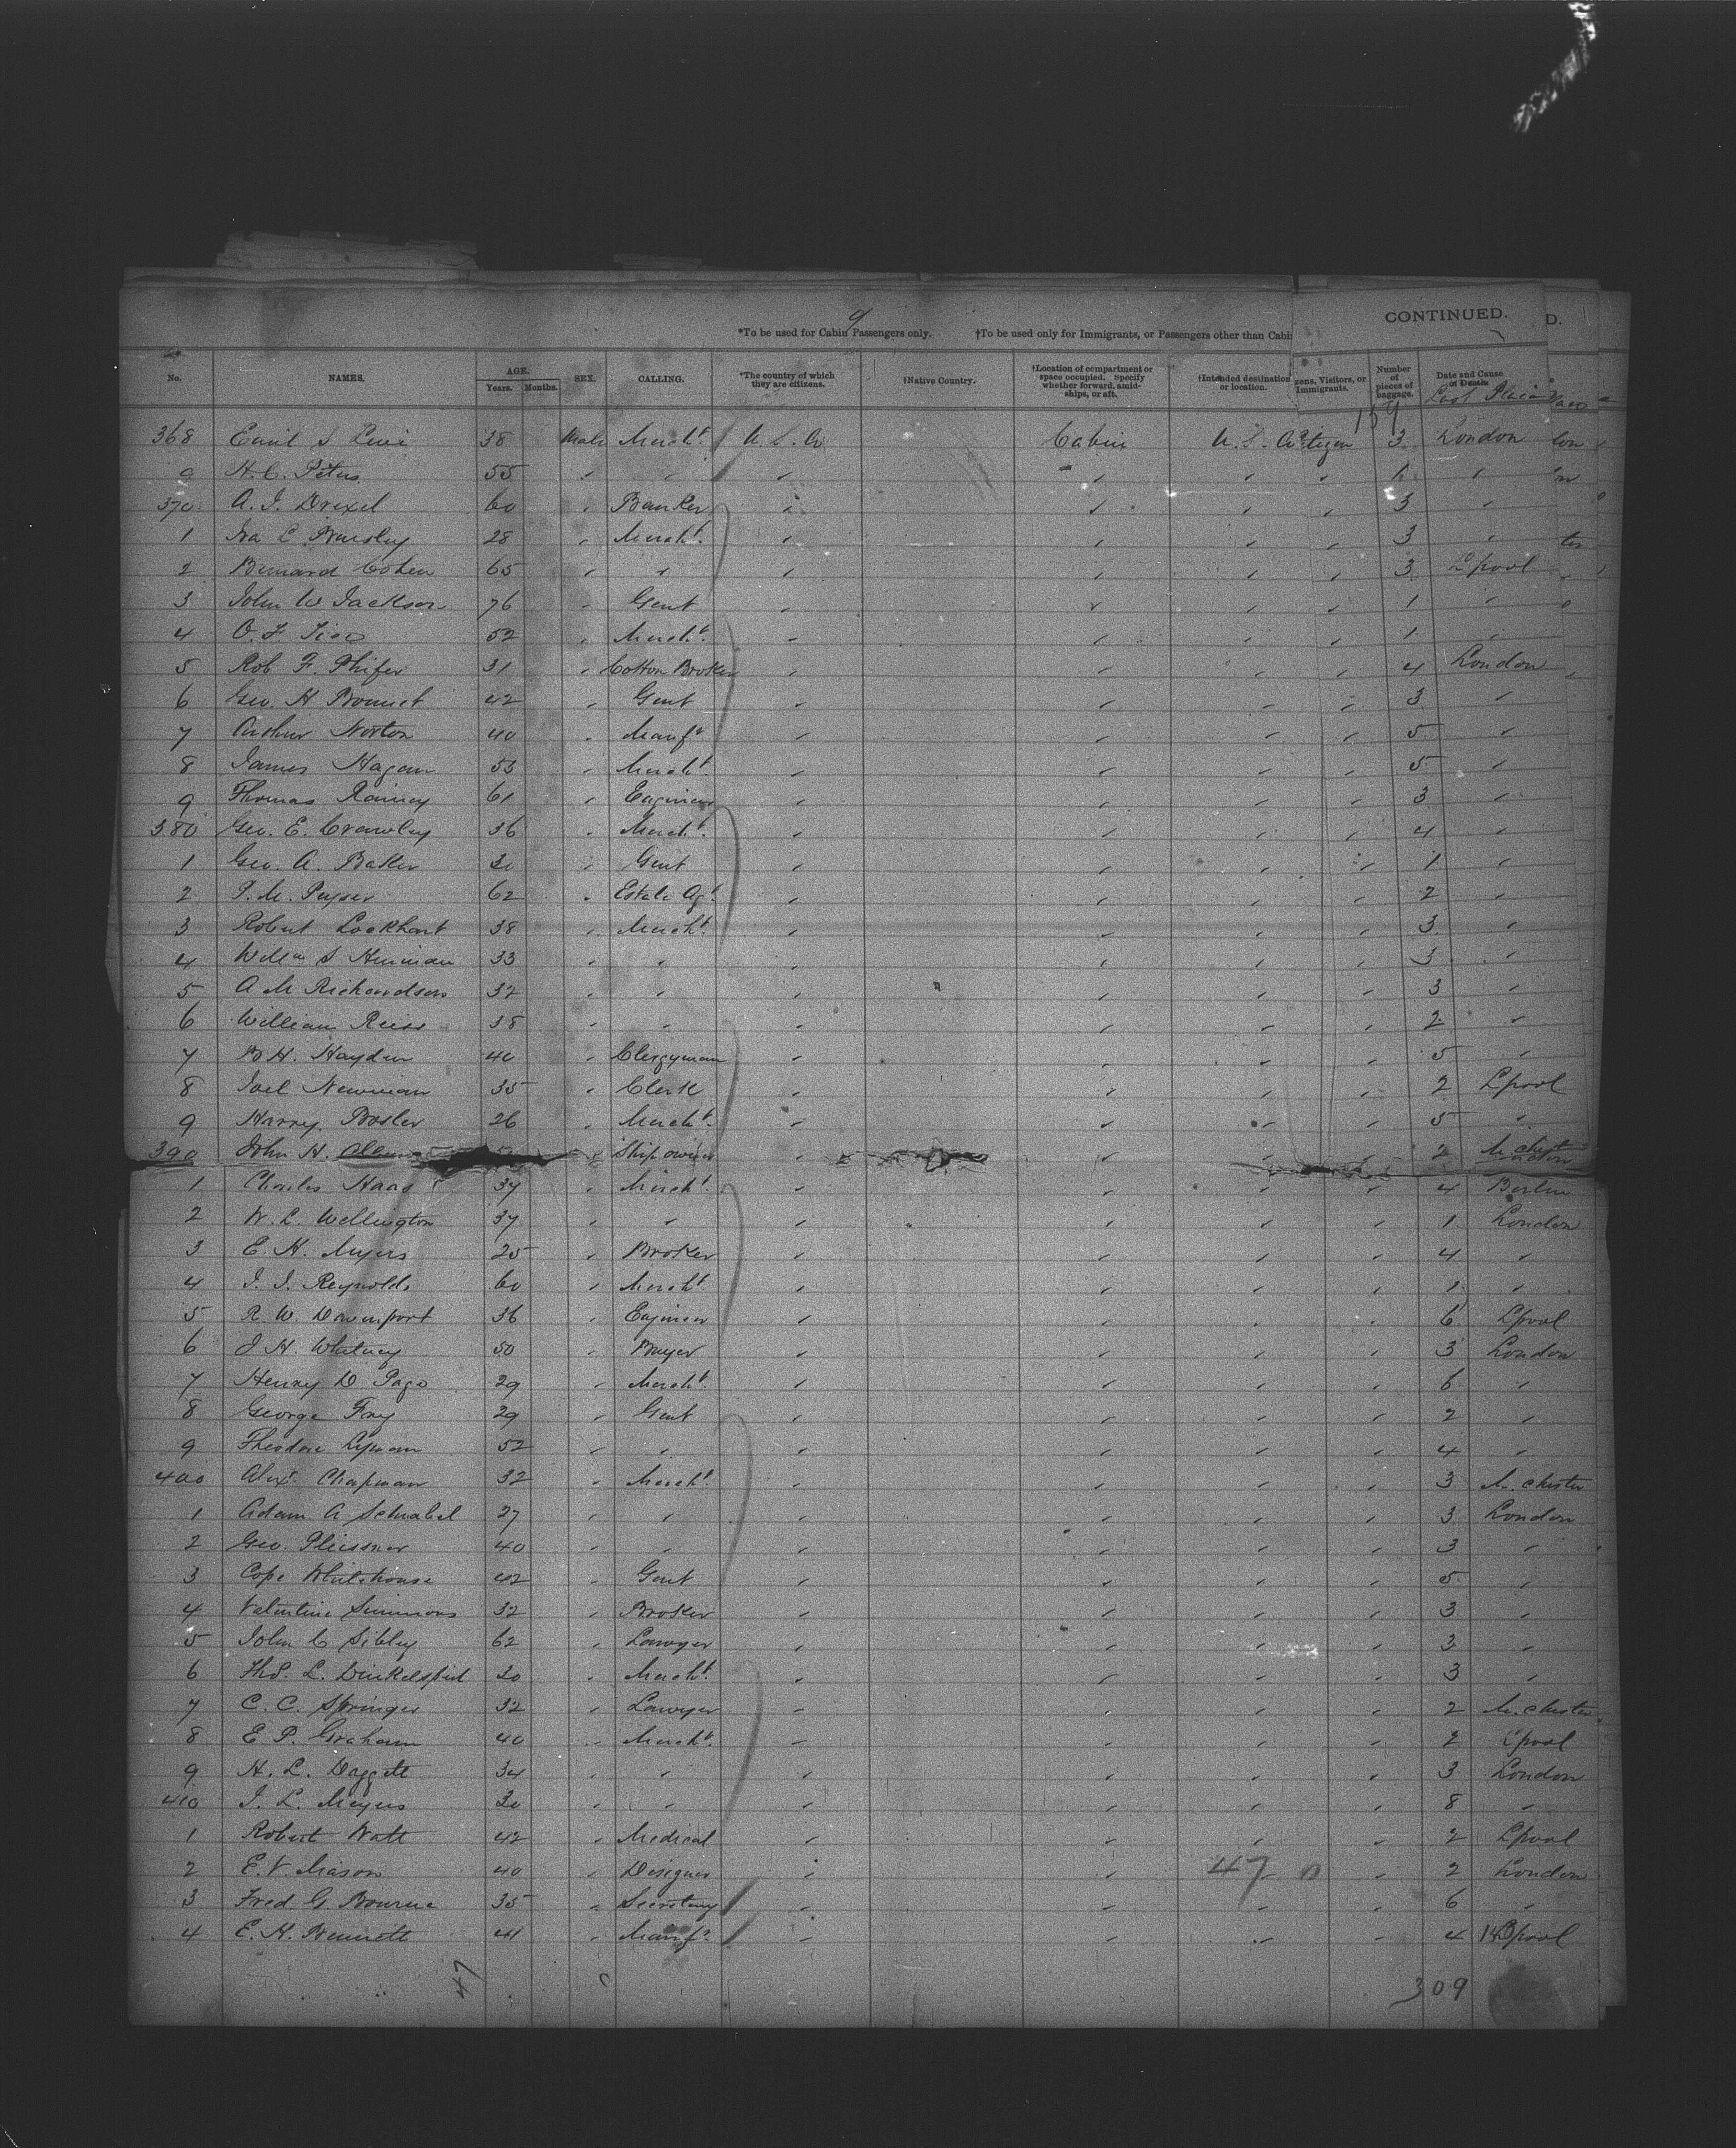 9
CONTINUED.
D.
*To be used for Cabin Passengers only. †To be used only for Immigrants, or Passengers other than Cabi
No. NAMES. AGE. Years. Months. SEX. CALLING. *The country of which they are citizens. †Native Country. †Location of compartment or space occupied. Specify whether forward, amidships, or aft. †Intended destination or location. zens, Visitors, or Immigrants. Number of pieces of baggage. Date and Cause of Death
159
368 Emil S Levi 38 Male Mercht. U.S.A Cabin U.S.A 3 London
9 H.C. Peters 55 " " " " " " 1 "
370 A.J. Drexel 60 " Banker " " " " 3 "
1 Ira C 28 " Mercht. " " " " 3 "
2 Bernard Cohen 65 " " " " " " 3 L'pool
3 John W Jackson 76 " Gent " " " " 1 "
4 O.F. 52 " Mercht. " " " " 1 "
5 Rob F. Phifer 31 " Cotton Broker " " " " 4 London
6 Geo. H 42 " Gent " " " " 3 "
7 Arthur Norton 40 " Manfr " " " " 5 "
8 James Hagan 53 " Mercht. " " " " 5 "
9 Thomas Rainey 61 " Engineer " " " " 3 "
380 Geo. E. Crawley 36 " Mercht. " " " " 4 "
1 Geo. A. Baker 30 " Gent " " " " 1 "
2 P.M. 62 " Estate Agt. " " " " 2 "
3 Robert Lockhart 38 " Mercht. " " " " 3 "
4 Willm S 33 " " " " " " 3 "
5 A M Richardson 32 " " " " " " 3 "
6 William Reiss 38 " " " " " " 2 "
7 B H. Hayden 40 " Clergyman " " " " 5 "
8 Joel Newman 35 " Clerk " " " " 2 L'pool
9 Harry Bosler 26 " Mercht. " " " " 5 "
390 John H. " Ship owner " " " " 2 M.chester
1 Charles Haas 37 " Mercht. " " " " 4 Berlin
2 W.L. Wellington 37 " " " " " " 1 London
3 E.H. Myers 25 " Broker " " " " 4 "
4 J.J. Reynolds 60 " Mercht. " " " " 1 "
5 R.W. Davenport 36 " Engineer " " " " 6 L'pool
6 J H. Whitney 50 " Buyer " " " " 3 London
7 Henry D Page 29 " Mercht. " " " " 6 "
8 George Fry 29 " Gent " " " " 2 "
9 Theodore Lyman 52 " " " " " " 4 "
400 Alexr. Chapman 32 " Mercht. " " " " 3 M.chester
1 Adam A Schnabel 27 " " " " " " 3 London
2 Geo. Pleissner 40 " " " " " " 3 "
3 Cope Whitehouse 42 " Gent " " " " 5 "
4 Valentine Simmons 32 " Broker " " " " 3 "
5 John C Sibley 62 " Lawyer " " " " 3 "
6 L. Dinkelspiel 30 " Mercht. " " " " 3 "
7 C.C. Springer 32 " Lawyer " " " " 2 M.chester
8 E P. Graham 40 " Mercht. " " " " 2 L'pool
9 H.L. Daggett 34 " " " " " " 3 London
410 J.L. Meyers 30 " " " " " " 8 "
1 Robert Watt 42 " Medical " " " " 2 L'pool
2 E.V. Mason 40 " Designer " " " " 2 London
3 Fred G. Bourne 35 " Secretary " " " " 6 "
4 E.H. Bennett 41 " Manfr. " " " " 4 L'pool
47 0
47
309